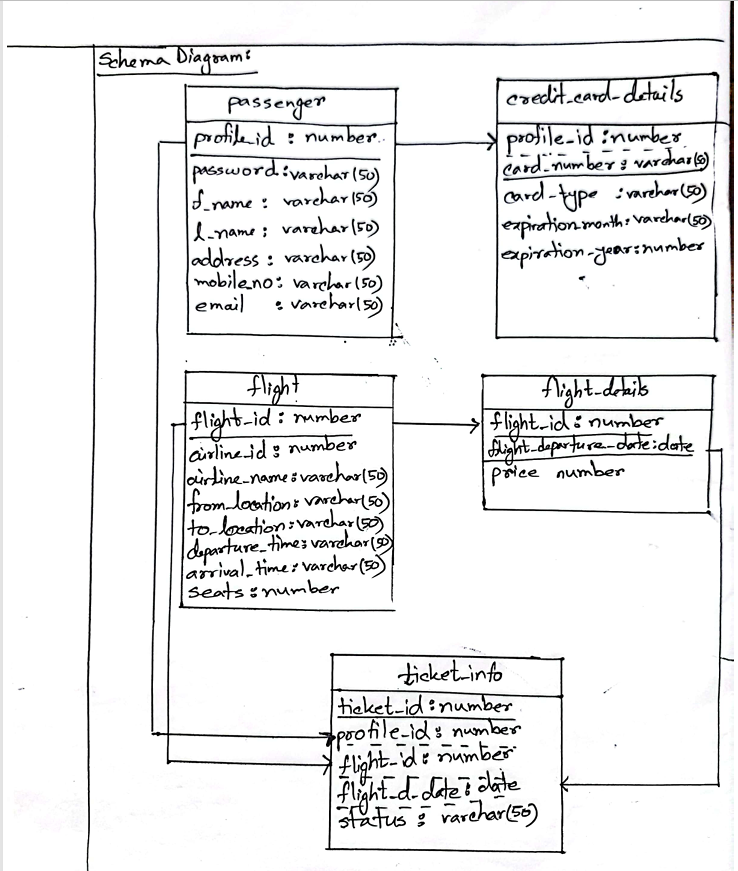 Schema Diagram:
passenger
profile_id : number
password : varchar(50)
f_name : varchar(50)
l_name : varchar(50)
address : varchar(50)
mobile_no : varchar(50)
email : varchar(50)
credit_card_details
profile_id : number
card_number : varchar(50)
card_type : varchar(50)
expiration_month : varchar(50)
expiration_year : number
flight
flight_id : number
airline_id : number
airline_name : varchar(50)
from_location : varchar(50)
to_location : varchar(50)
departure_time : varchar(50)
arrival_time : varchar(50)
seats : number
flight_details
flight_id : number
flight_departure_date : date
price number
ticket_info
ticket_id : number
profile_id : number
flight_id : number
flight_d_date : date
status : varchar(50)